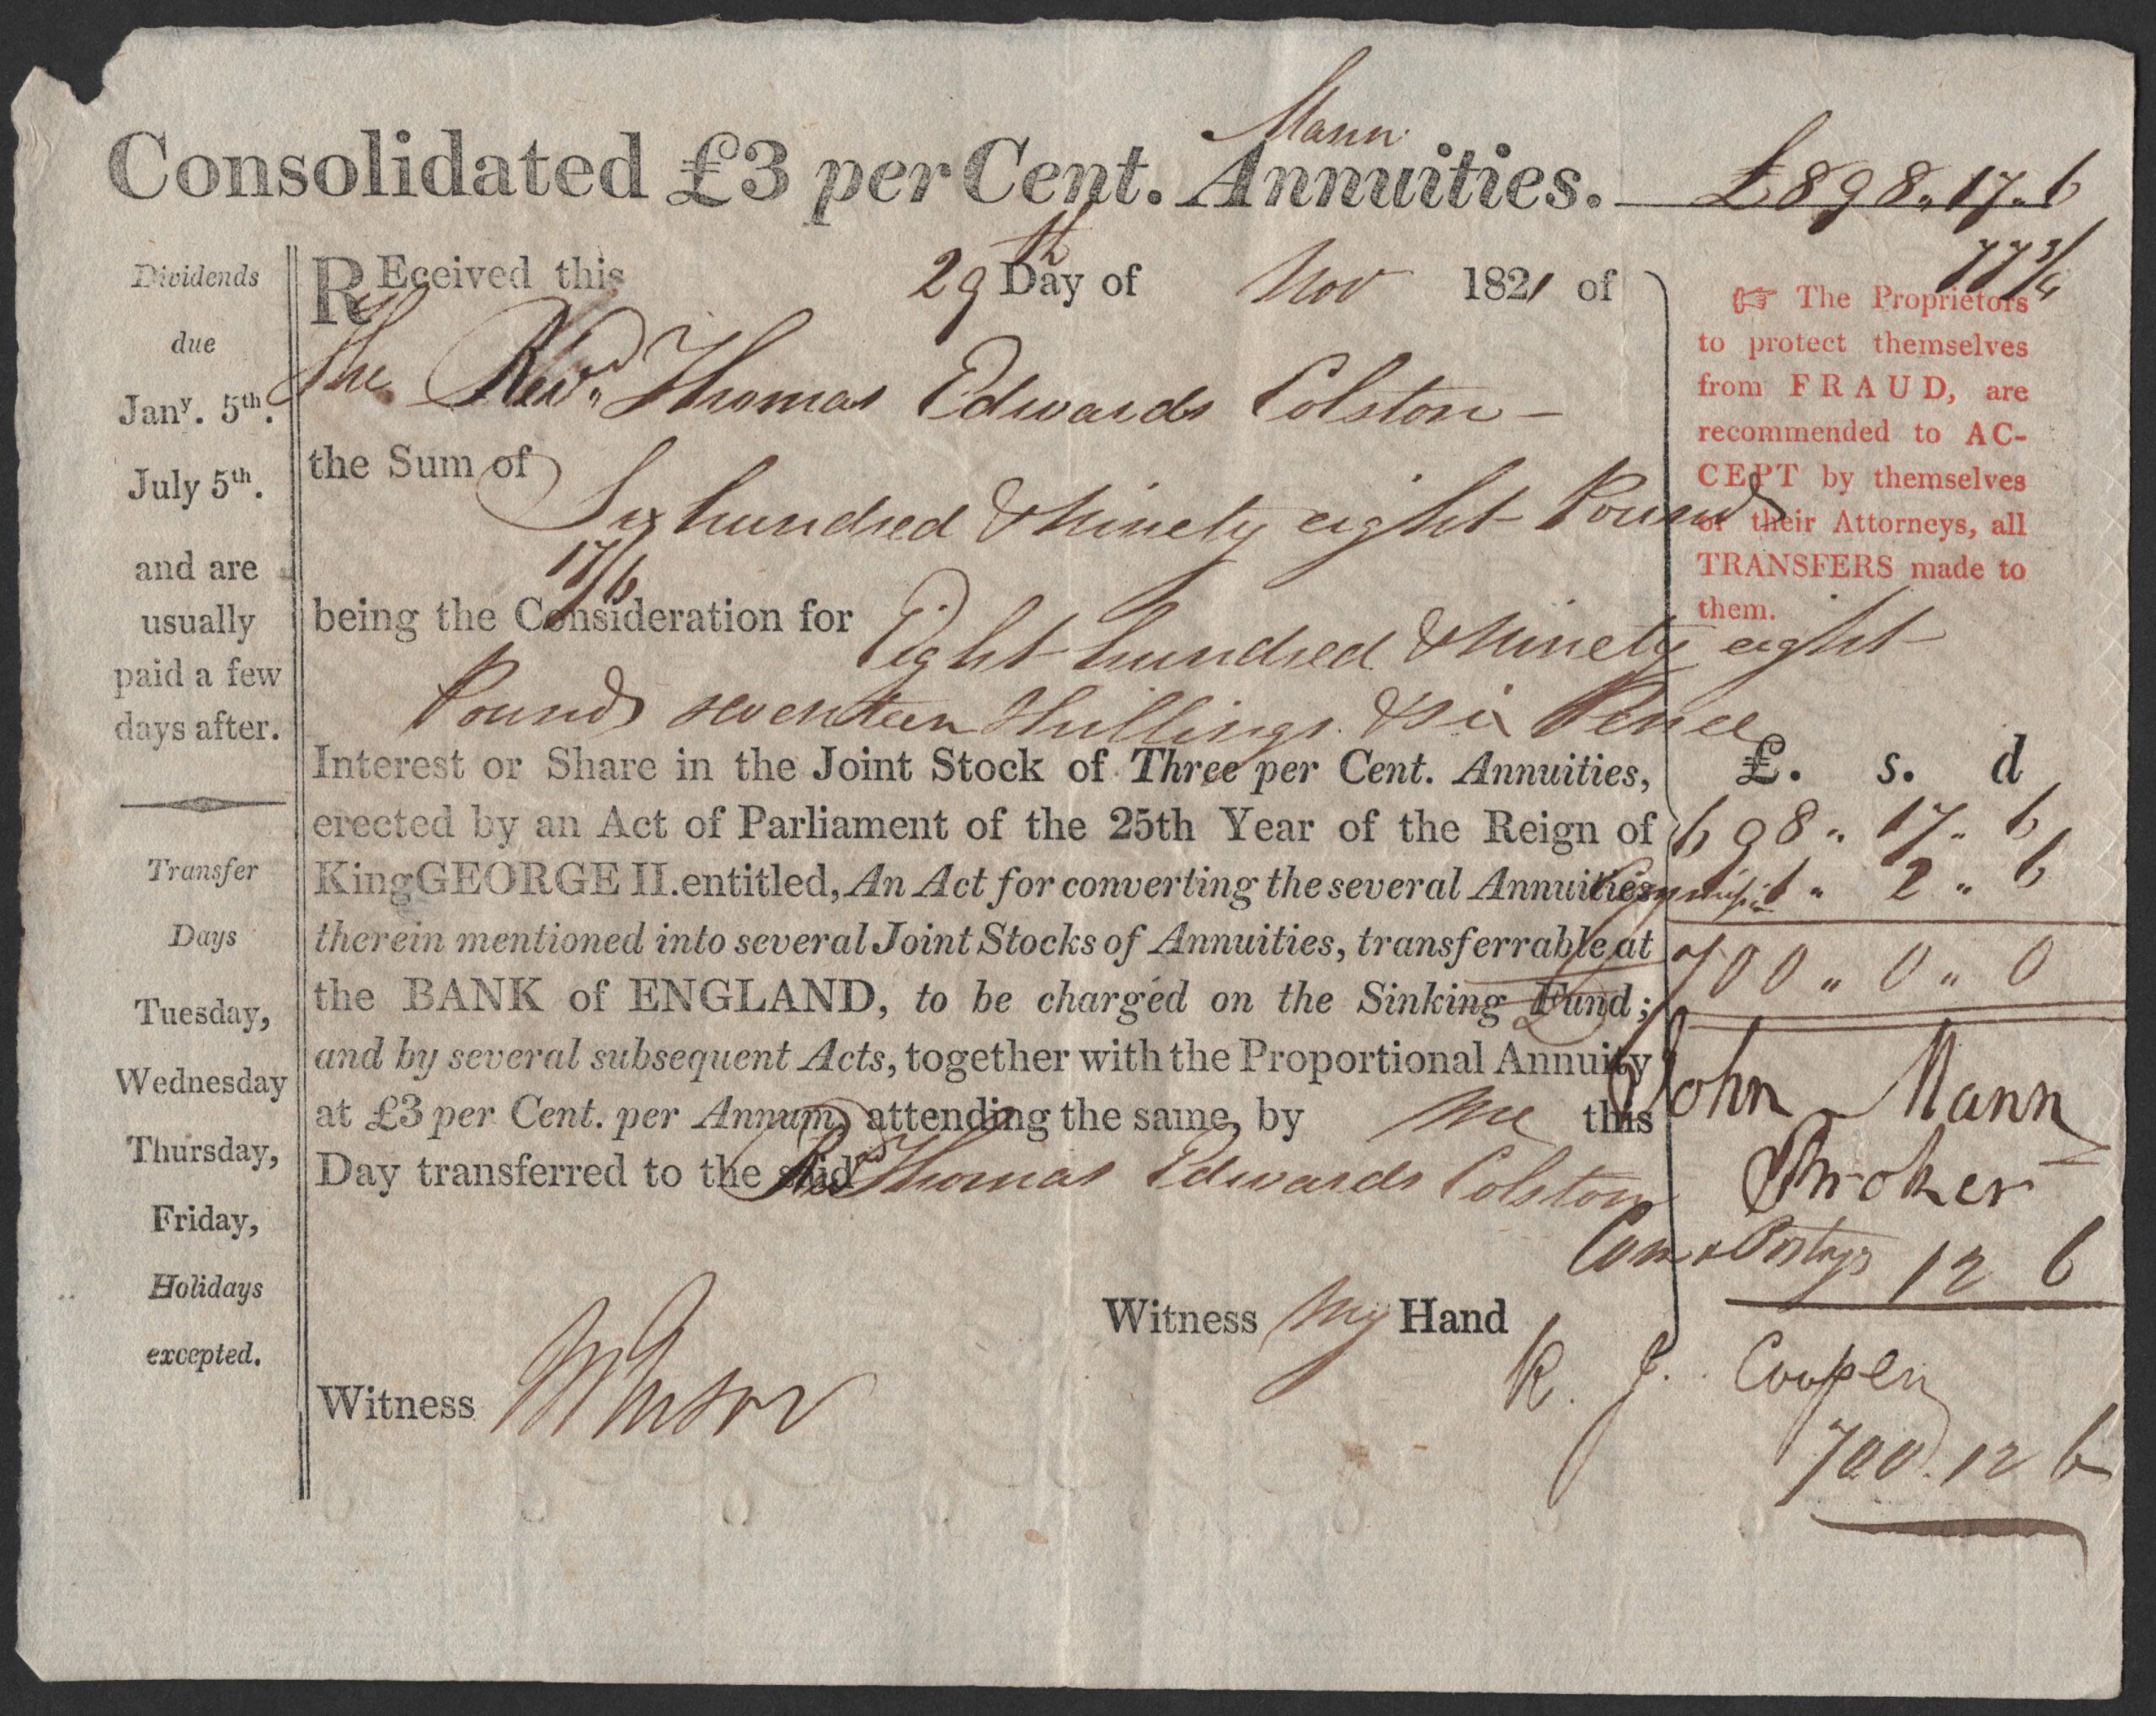 Mann
Consolidated £3 per Cent. Annuities. £898„17„6
77 3/4
Dividends
due
Janʸ. 5th.
July 5th.
and are
usually
paid a few
days after.
Transfer
Days
Tuesday,
Wednesday
Thursday,
Friday,
Holidays
excepted.
REceived this 29th Day of Nov 1821 of
The Revd. Thomas Edwards Colston –
the Sum of Six hundred & Ninety eight Pounds
17/6
being the Consideration for Eight hundred & Ninety eight
Pounds seventeen Shillings & six Pence
Interest or Share in the Joint Stock of Three per Cent. Annuities,
erected by an Act of Parliament of the 25th Year of the Reign of
King GEORGE II. entitled, An Act for converting the several Annuities
therein mentioned into several Joint Stocks of Annuities, transferrable at
the BANK of ENGLAND, to be charged on the Sinking Fund;
and by several subsequent Acts, together with the Proportional Annuity
at £3 per Cent. per Annum, attending the same, by me this
Day transferred to the said Revd Thomas Edwards Colston
Witness my Hand
R. J. Cooper
Witness
☞ The Proprietors
to protect themselves
from FRAUD, are
recommended to AC-
CEPT by themselves
or their Attorneys, all
TRANSFERS made to
them.
£. s. d
698„ 17„ 6
Commissn 1„ 2„ 6
£ 700„ 0„ 0
John Mann
Broker
Com & Postage 12 6
700. 12 6